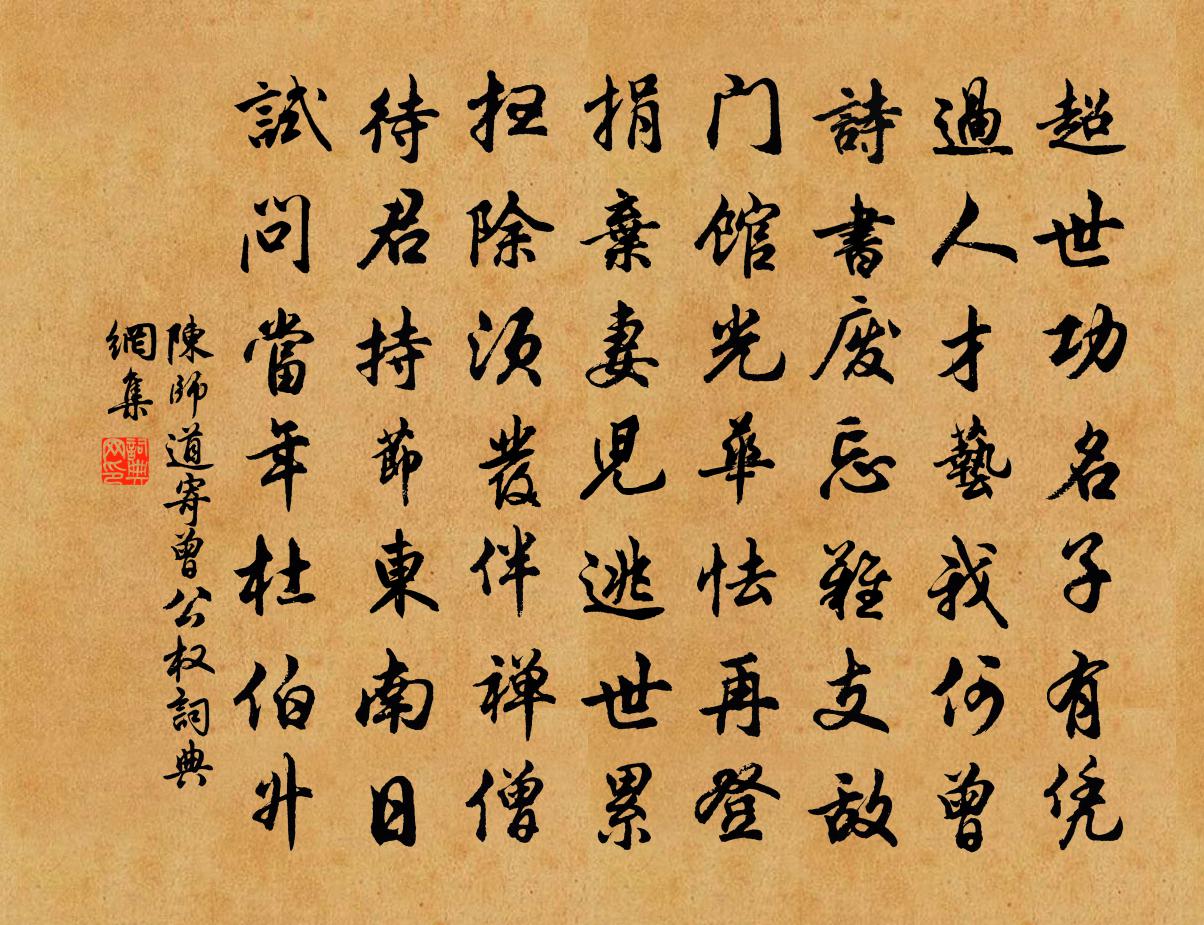 超世功名子有凭
過人才藝我何曾
詩書废忘難支敌
门馆光華怯再登
捐棄妻児逃世累
抠除须發伴禅僧
待君持節東南日
試問當年杜伯升
陳師道寄曾公权詞典
網集
詞典
网印